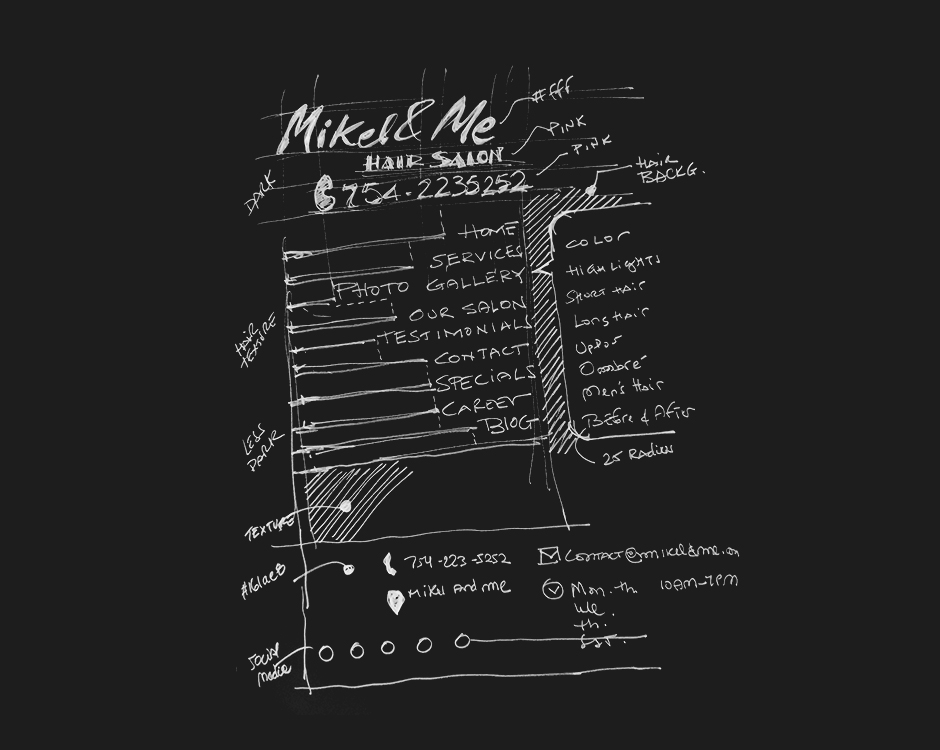 #fff
Mikel & Me
PINK
HAIR SALON
PINK
754-2235252
HAIR
BACKG.
DARK
HOME
SERVICES
PHOTO GALLERY
OUR SALON
TESTIMONIALS
CONTACT
SPECIALS
CAREER
BLOG
COLOR
HIGHLIGHTS
SHORT HAIR
Long Hair
Updos
Men's Hair
Before & After
25 Radius
HAIR
TEXTURE
LESS
DARK
TEXTURE
754-223-5252
Mikel And Me
Mon. th 10AM-7PM
We.
th.
Sat.
Social
Media